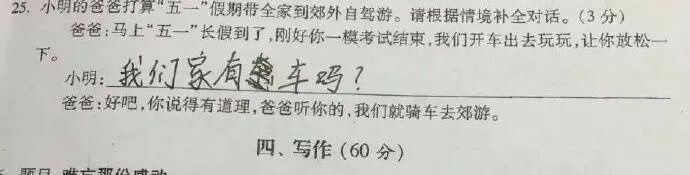 25. 小明的爸爸打算“五一”假期带全家到郊外自驾游。请根据情境补全对话。(3 分)
爸爸:马上“五一”长假到了,刚好你一模考试结束,我们开车出去玩玩,让你放松一
下。
小明:我们家有车吗?
爸爸:好吧,你说得有道理,爸爸听你的,我们就骑车去郊游。
四、写作(60 分)
题目 难忘那份感动